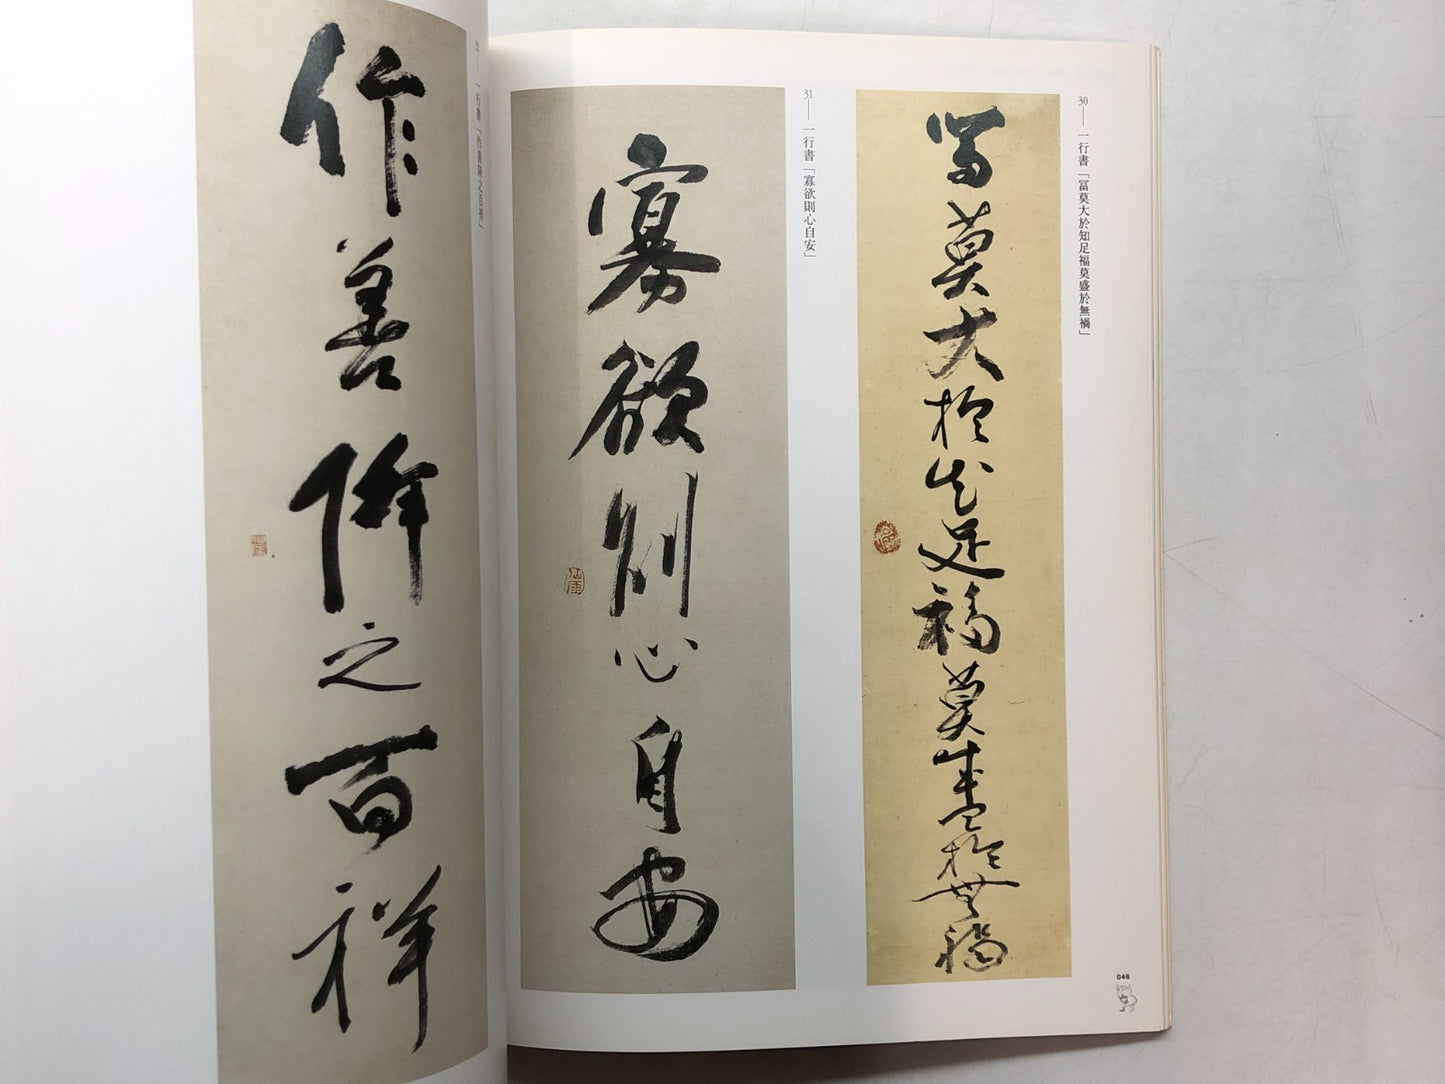 30——一行書「冨莫大於知足福莫盛於無禍」
冨莫大於知足福莫盛於無禍
31——一行書「寡欲則心自安」
寡欲則心自安
046
一行書「作善降之百祥」
作善降之百祥